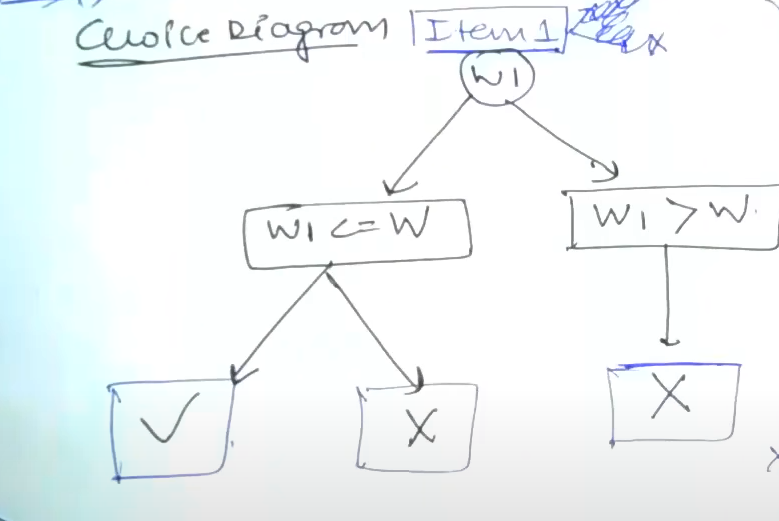 Choice Diagram Item 1
x
W1
W1 <= W
W1 > W
✓ X X